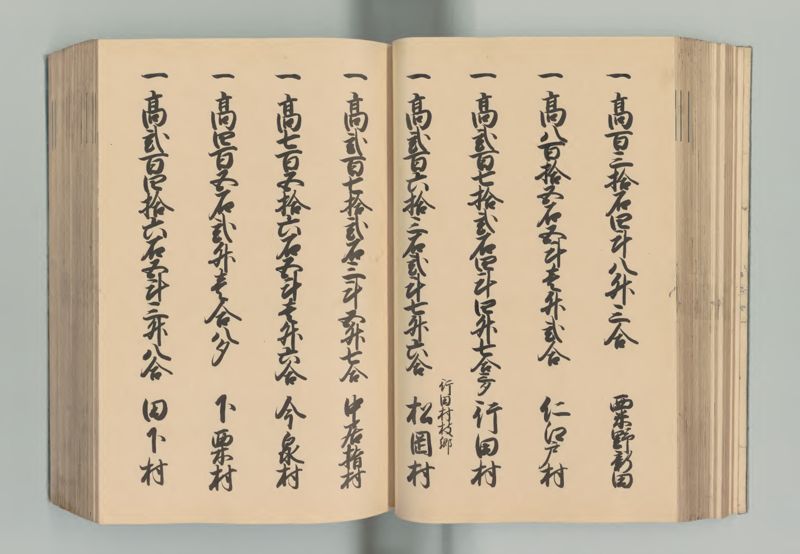 一 高百三拾石四斗八升三合 粟野新田
一 高八百拾五石五斗壱升弐合 仁江戸村
一 高弐百七拾弐石四斗四升七合三夕 行田村
行田村枝郷
一 高弐百六拾三石弐斗七升六合 松岡村
一 高弐百七拾弐石三斗五升七合 中居指村
一 高七百五拾六石五斗壱升六合 今泉村
一 高四百五石弐升壱合八夕 下栗村
一 高弐百四拾六石五斗三升八合 田下村